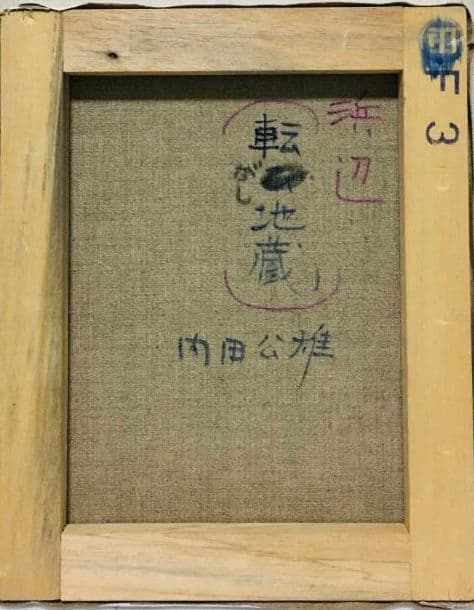 浜辺
転がし地蔵」
内田公雄
F3